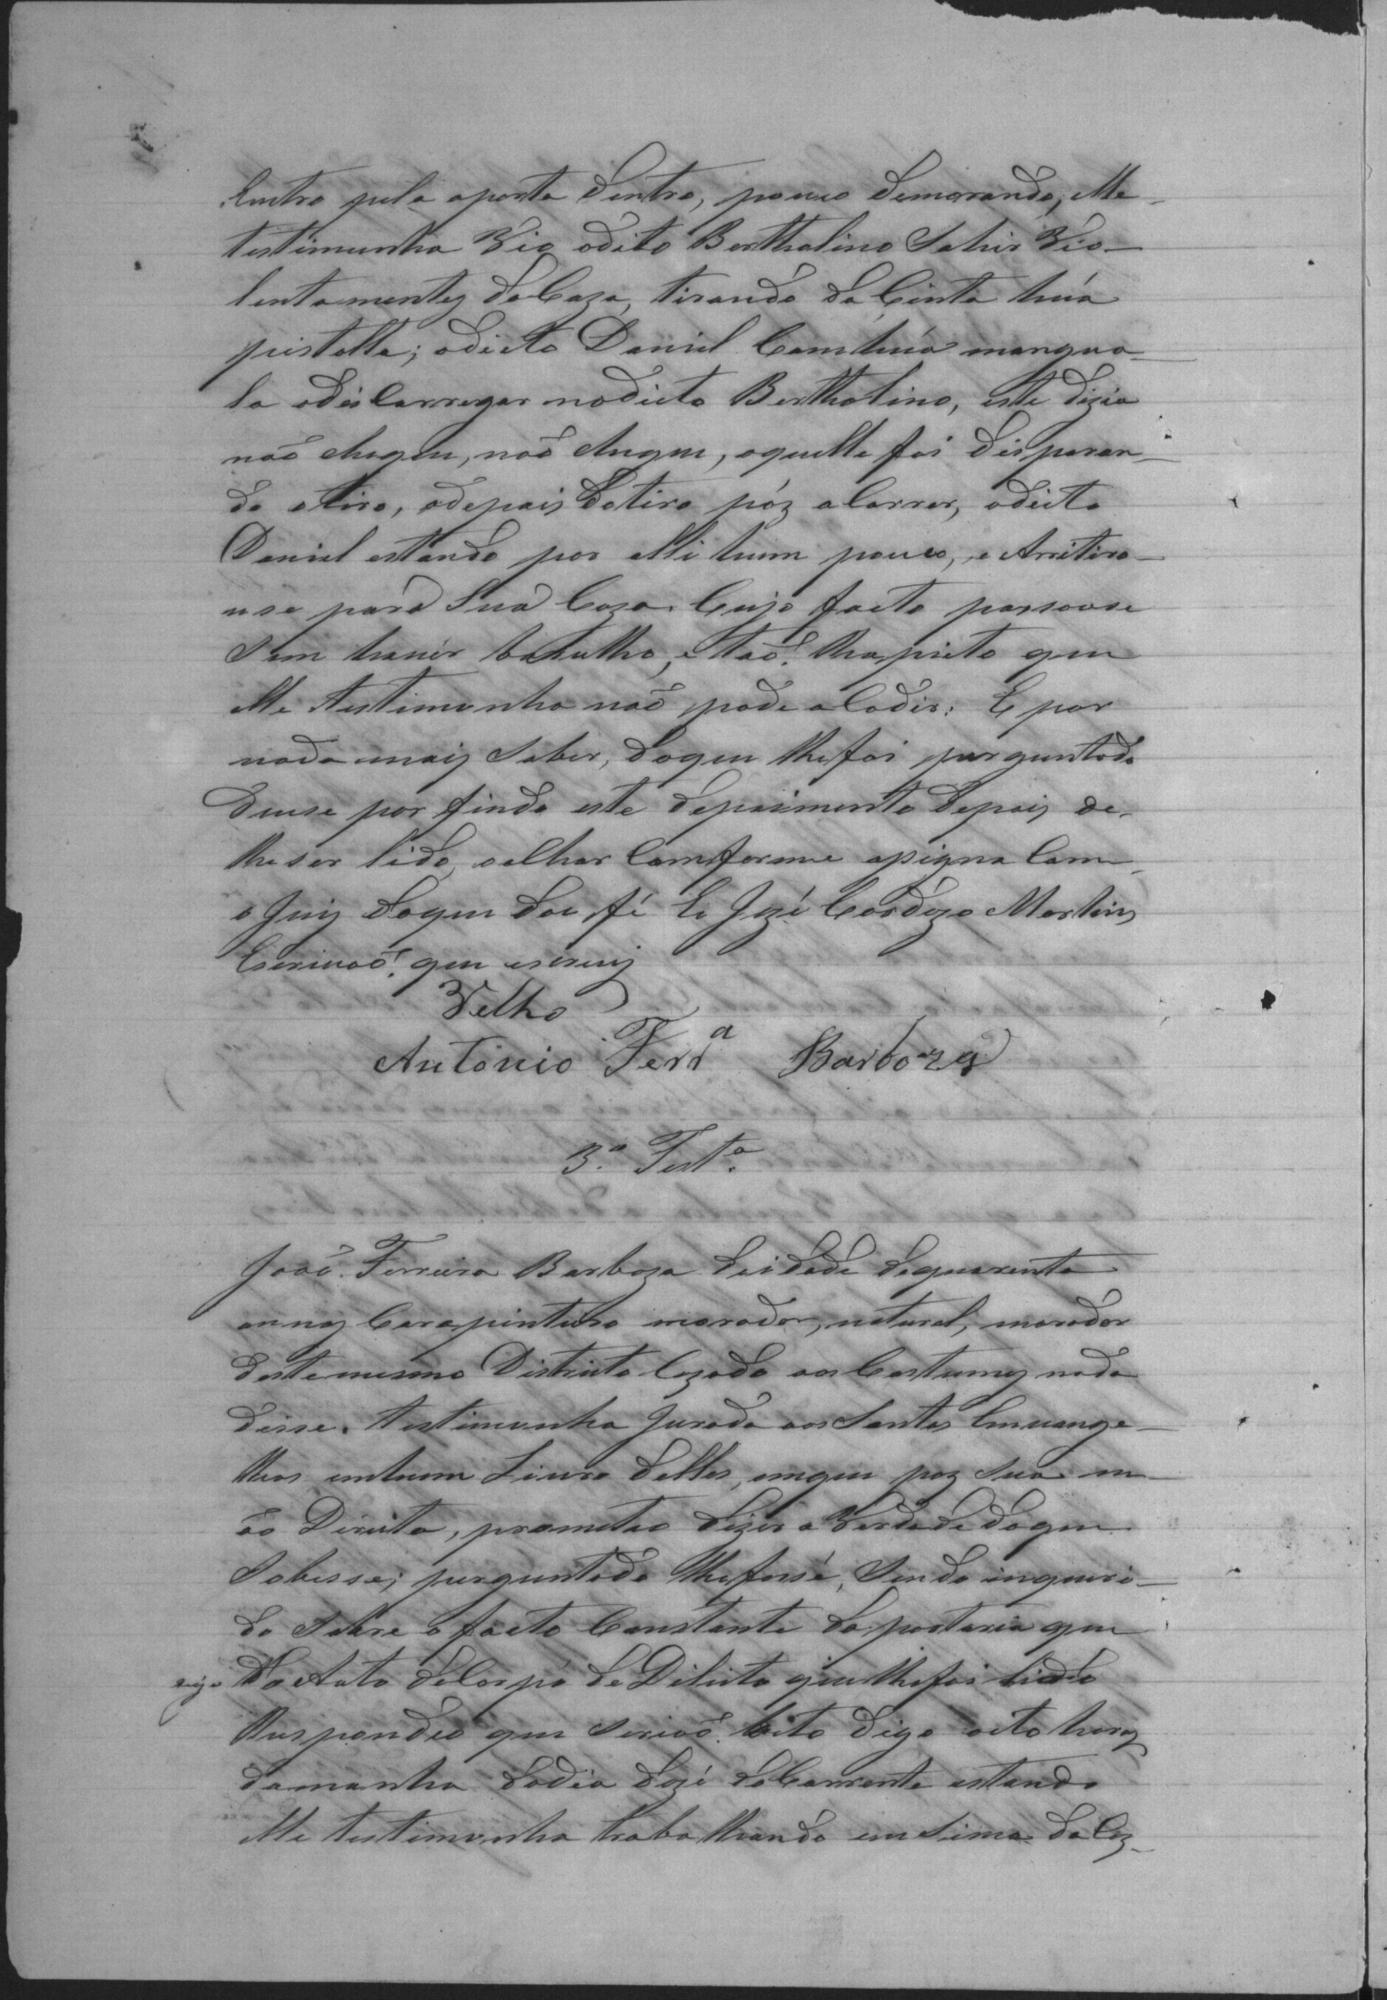 Entro pela aporta dentro, pouco demorando, elle
testimunha Vio odito Bertholino Sahir Vio-
lentamentes da Caza, tirando da Cinta húa
pistolla; odicto Daniel Com húa mangua-
la a descarregar nodicto Bertholino, este dizia
não chegue, não chegue, aquelle foi disparan-
do otiro, odepois dotiro póz aCorrer, odicto
Daniel estando por alli hum pouco, e Arretiro-
use para Sua Caza. Cujo facto passouse
Sem haver barulho, e tão Rapieto que
elle testimunha não pode aCodir. E por
nada mais Saber, doque lhefoi perguntado
deuse por findo este depoimento depois de
lheser lido, oalhar Comforme asigna Com
o Juiz doque dou fé Eu Jozé Cardozo Martins
Escrivão que escrevij
Velho
António Ferrª Barboza
3ª Testª
João Ferreira Barboza deidade dequarenta
annos Carapinteiro morador, natural, morador
deste mesmo Districto Cazado aos Costumes nada
disse. testimunha Jurada aos Santos Emvange-
lhos emhum Livro delles, emque poz Sua m-
ão Direita, prometeo dizer a Verdade doque
Sobesse; perguntado lhefosse, Sendo inqueri-
do Sobre o facto Constante da portaria que
digo Do Auto deCorpo de Dilicto que lhefoi lido
Respondeo que Serião oito digo oito horas
damanha dodia dozé doCorrente estando
elle testimunha trabalhando em Sima da Ca-